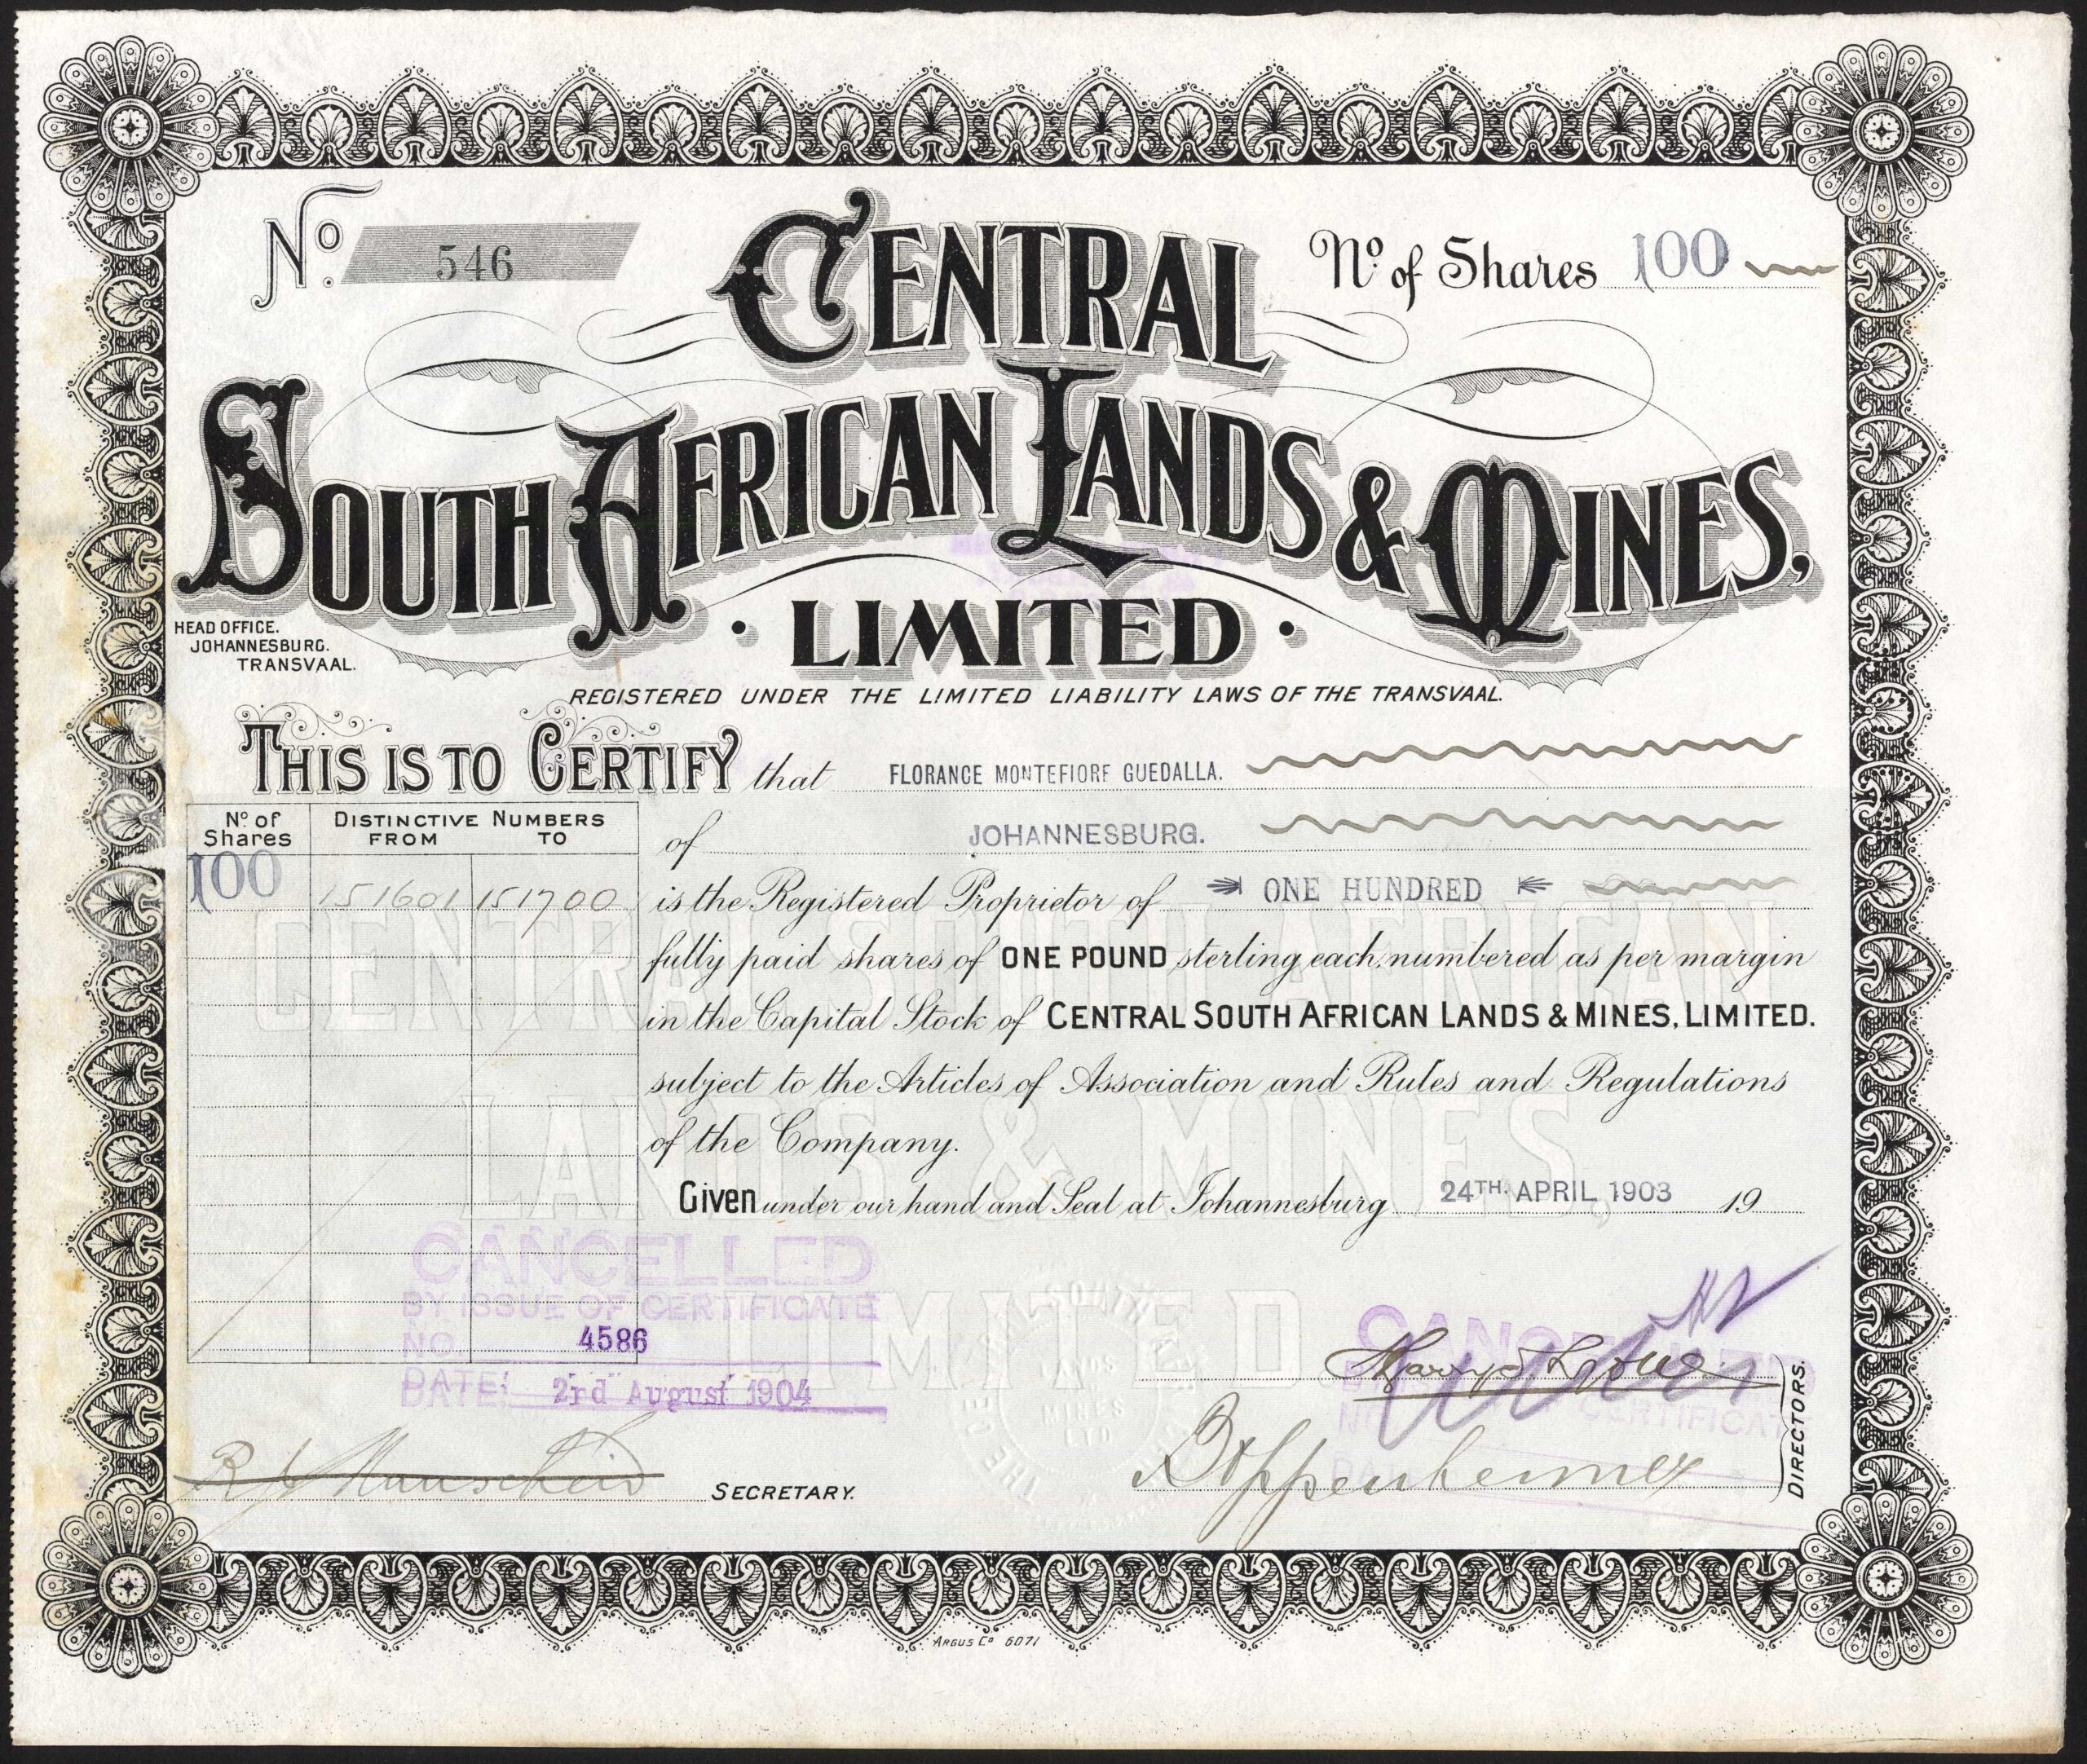 No. 546
No. of Shares 100
CENTRAL
SOUTH AFRICAN LANDS & MINES,
· LIMITED ·
HEAD OFFICE.
JOHANNESBURG.
TRANSVAAL.
REGISTERED UNDER THE LIMITED LIABILITY LAWS OF THE TRANSVAAL.
THIS IS TO CERTIFY that FLORANCE MONTEFIORE GUEDALLA.
of JOHANNESBURG.
is the Registered Proprietor of ONE HUNDRED
fully paid shares of ONE POUND sterling each, numbered as per margin
in the Capital Stock of CENTRAL SOUTH AFRICAN LANDS & MINES, LIMITED.
subject to the Articles of Association and Rules and Regulations
of the Company.
Given under our hand and Seal at Johannesburg 24TH. APRIL, 1903 19
No. of Shares
DISTINCTIVE NUMBERS
FROM TO
100 151601 151700
CENTRAL SOUTH AFRICAN
LANDS & MINES,
LIMITED
CANCELLED
BY ISSUE OF CERTIFICATE
NO. 4586
DATE: 2rd August 1904
SECRETARY.
CANCELLED
CERTIFICATE
NO
DA
Boppenheimer
DIRECTORS.
SOUTH
LANDS
MINES
LTD
THE CE
ARGUS Co 6071